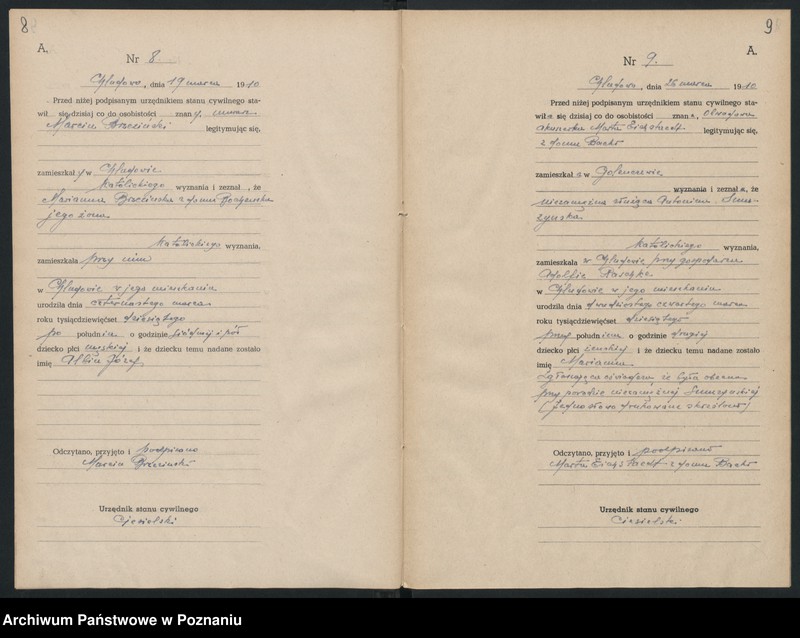 8
A.
Nr 8.
dnia 19 marca 1910
Przed niżej podpisanym urzędnikiem stanu cywilnego sta-
wił się dzisiaj co do osobistości znany,
Marcin Brzeziński legitymując się,
zamieszkały w
katolickiego wyznania i zeznał, że
Marianna z domu
jego żona
katolickiego wyznania,
zamieszkała przy nim
w w jego mieszkaniu
urodziła dnia czternastego marca
roku tysiącdziewięćset dziesiątego
po południu o godzinie siódmej i pół
dziecko płci męskiej i że dziecku temu nadane zostało
imię Józef
Odczytano, przyjęto i podpisano
Marcin Brzeziński
Urzędnik stanu cywilnego
Ciesielski
9
A.
Nr 9.
dnia 26 marca 1910
Przed niżej podpisanym urzędnikiem stanu cywilnego sta-
wiła się dzisiaj co do osobistości znana,
akuszerka Marta legitymując się,
z domu
zamieszkała w Golenczewie
wyznania i zeznała, że
niezamężna służąca Antonina
katolickiego wyznania,
zamieszkała w przy gospodarzu
w w jego mieszkaniu
urodziła dnia dwudziestego czwartego marca
roku tysiącdziewięćset dziesiątego
przed południem o godzinie drugiej
dziecko płci żeńskiej i że dziecku temu nadane zostało
imię Marianna
że była obecna
przy porodzie niezamężnej
(jedno słowo drukowane skreślono)
Odczytano, przyjęto i podpisano
Marta z domu
Urzędnik stanu cywilnego
Ciesielski
Archiwum Państwowe w Poznaniu